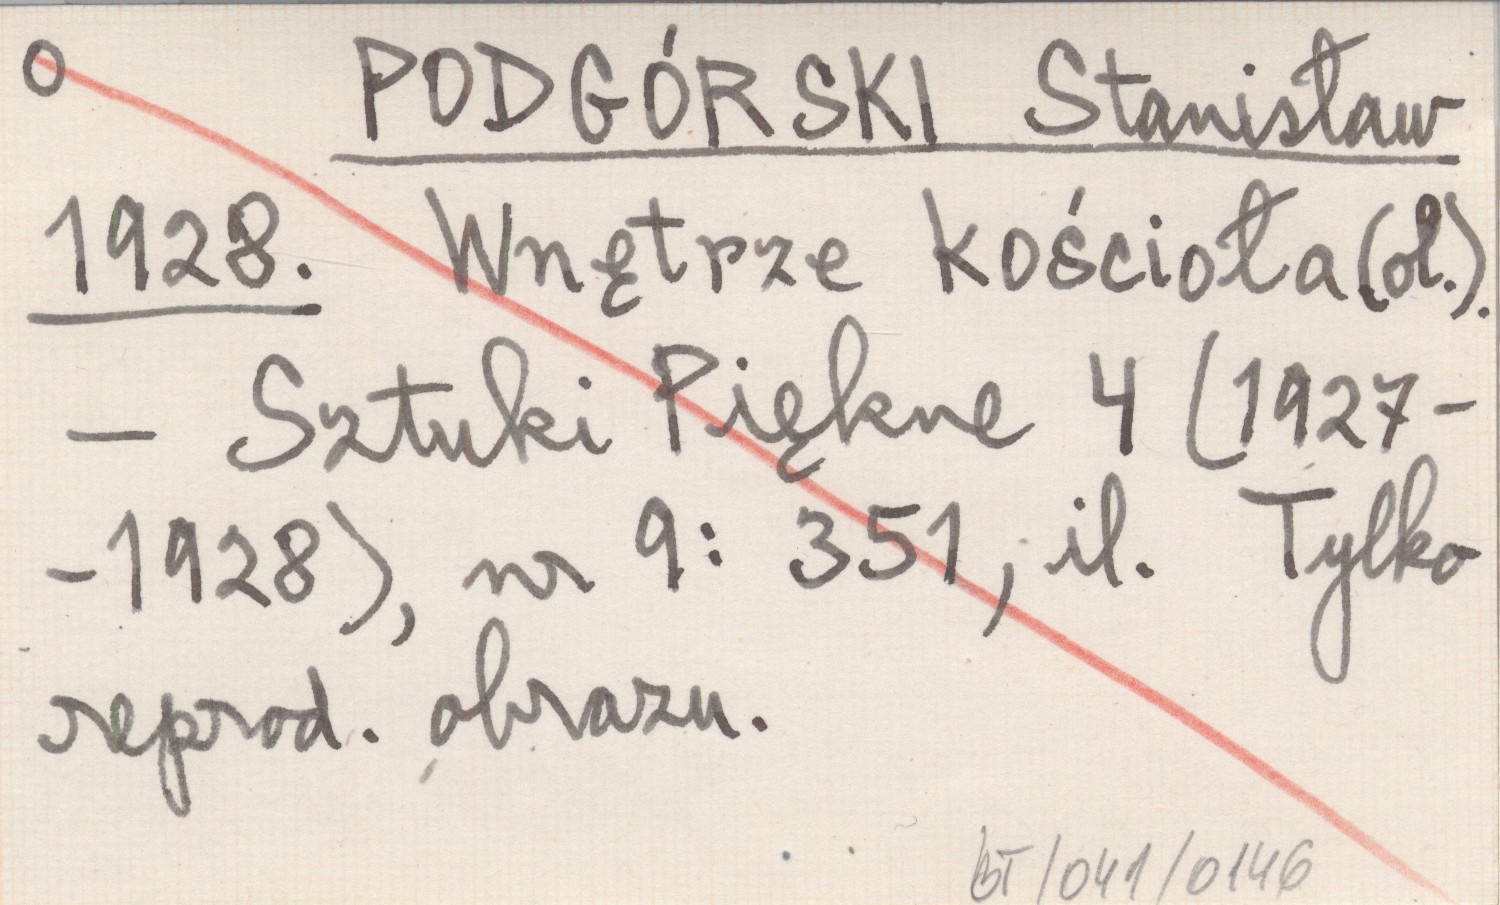 o PODGÓRSKI Stanisław
1928. Wnętrze kościoła (ol.).
— Sztuki Piękne 4 (1927-
-1928), nr 9: 351, il. Tylko
reprod. obrazu.
BT/041/0146